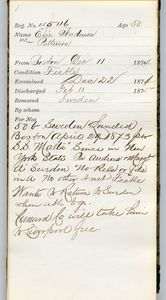 Reg. No. 45716 Age 50
Name Eric Anderson
From Boston Dec 11 1874
Condition Feeble
Examined Dec 22 1874
Discharged Feb 11 187
Removed Sweden
By whom
For No.
50 b Sweden Landed
Boston April 24 1873 per
S.S. Malta Since in New
York State Pa Andrew Margt
in Sweden No Rels or Frds
in A No other Inst Feeble
Wants to Return to Sweden
when able to go
Cunard Co will take him
to Liverpool free